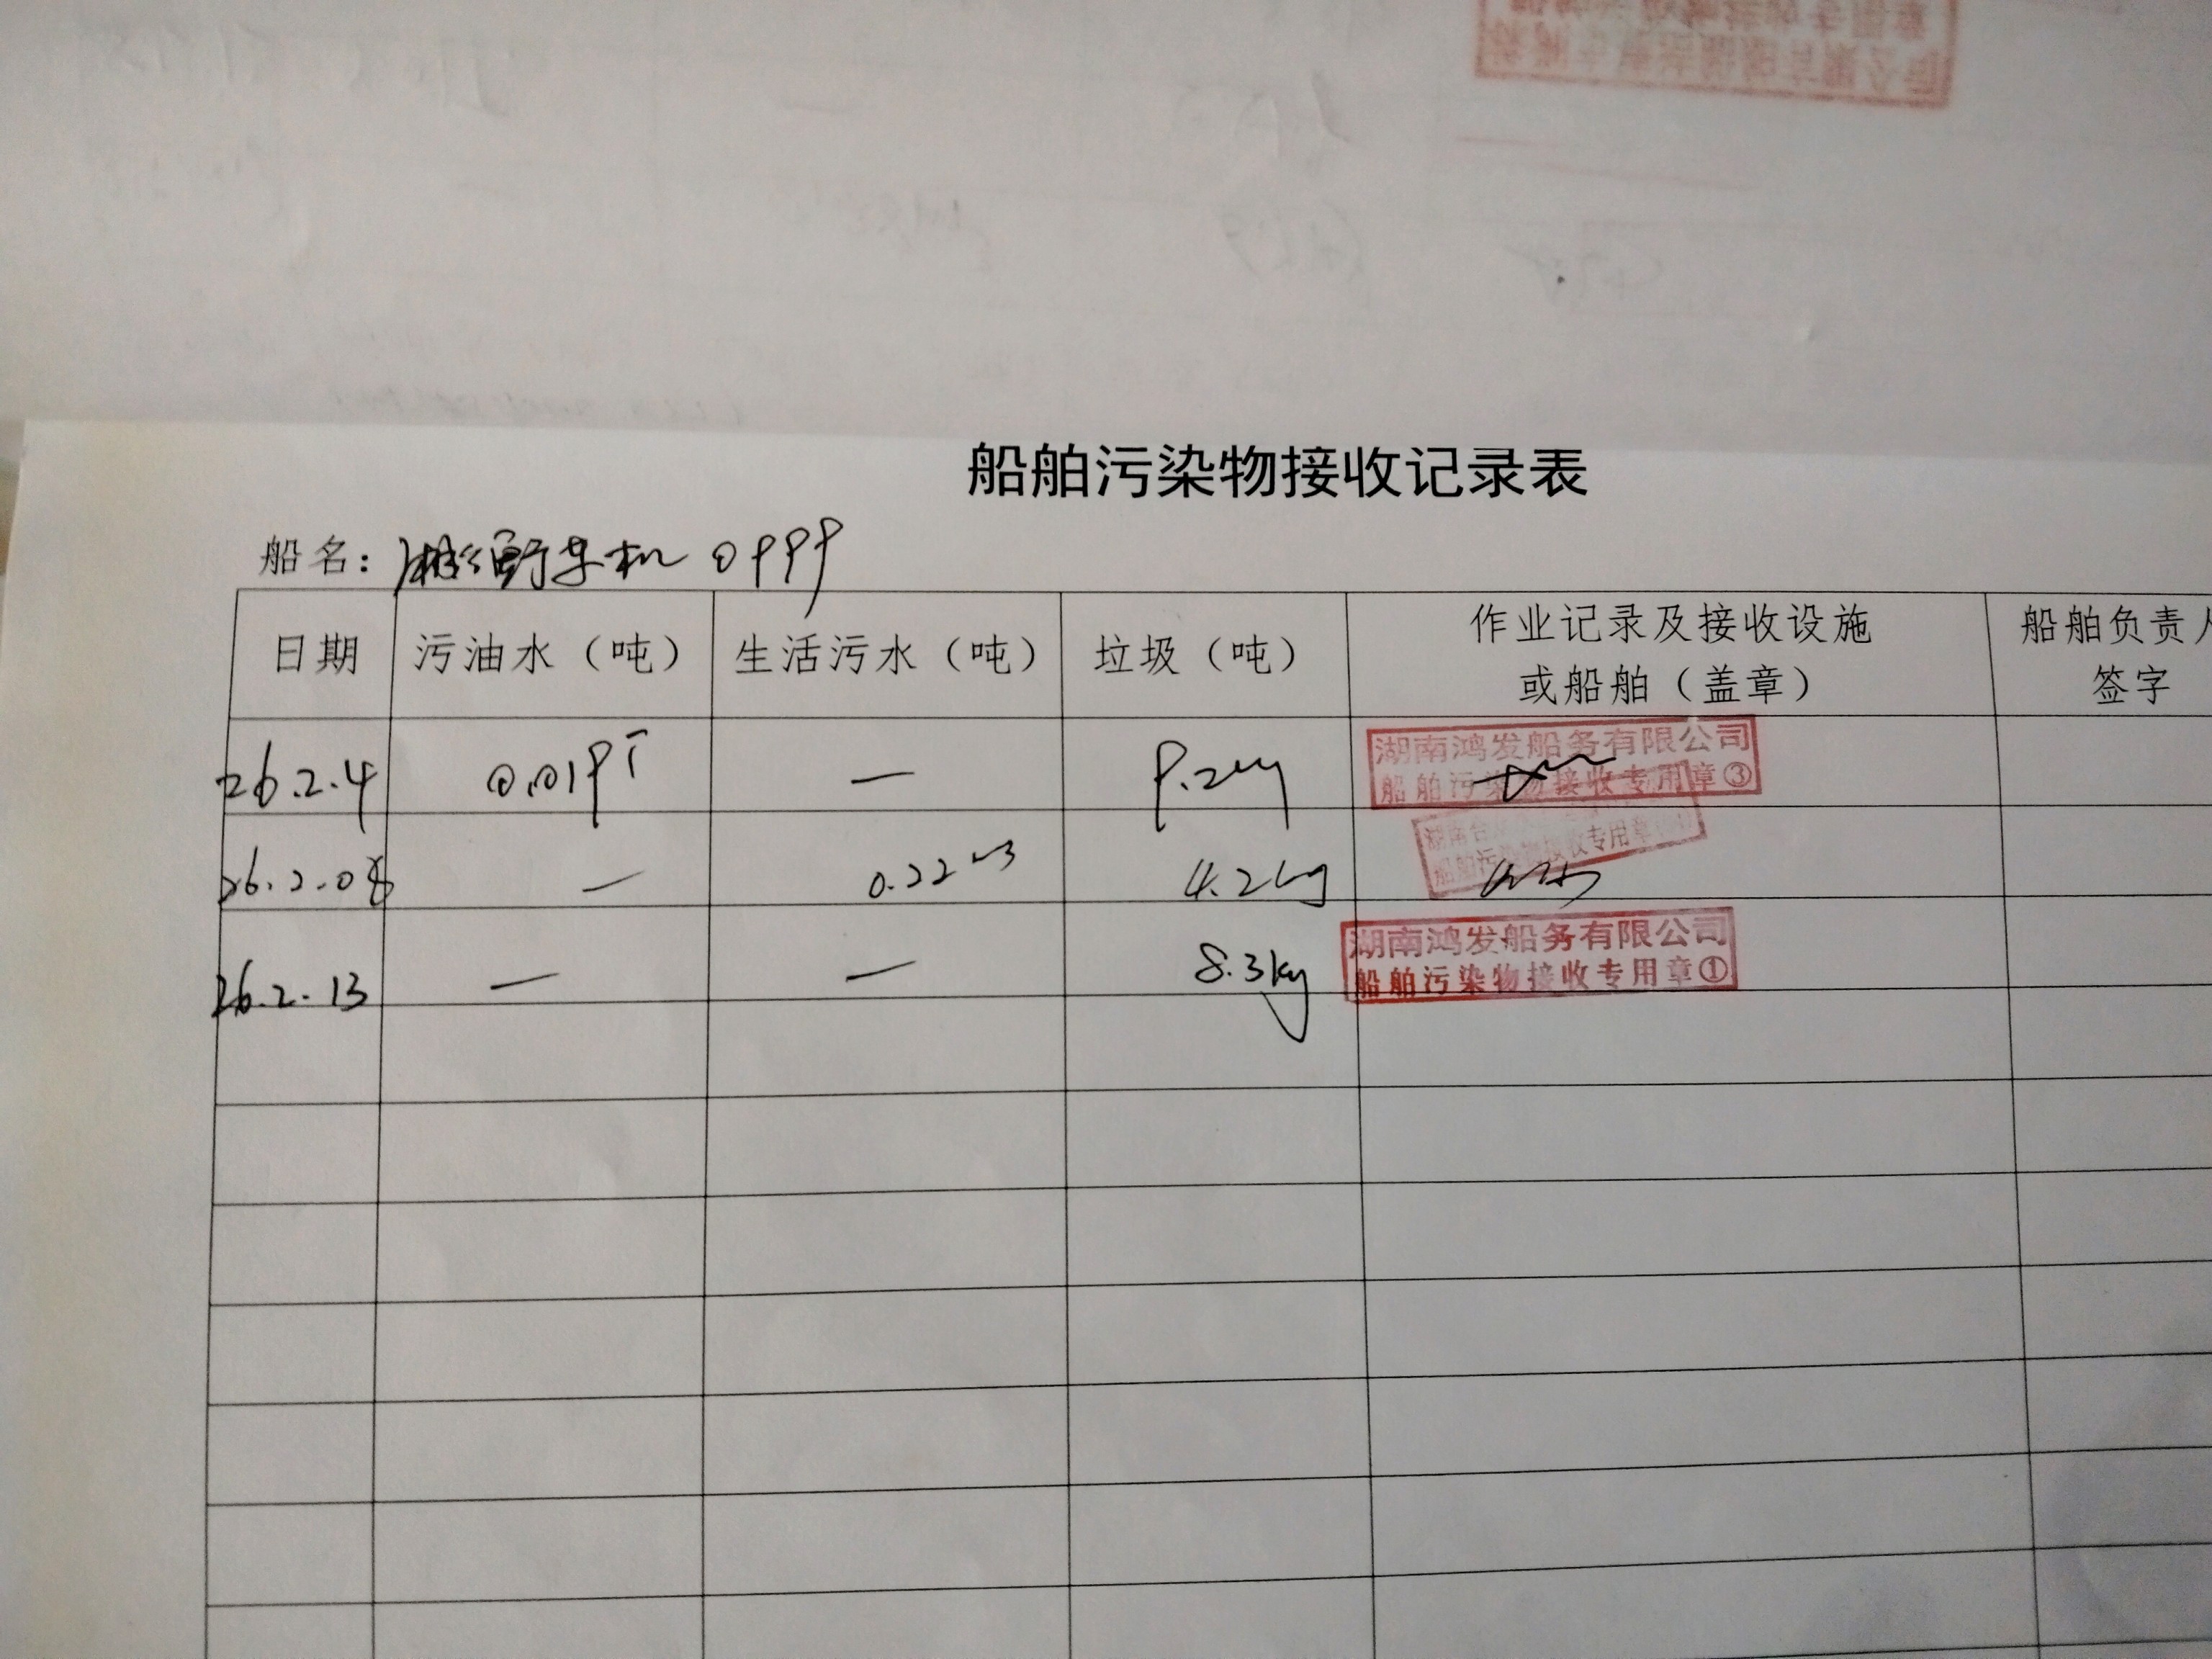 船舶污染物接收记录表
船名：湘 机 0999
日期 污油水（吨） 生活污水（吨） 垃圾（吨） 作业记录及接收设施或船舶（盖章） 船舶负责人签字
26.2.4 0.019T — 9.2kg 湖南鸿发船务有限公司
船舶污染物接收专用章③
26.2.08 — 0.22m3 4.2kg 湖南
船舶污染物接收专用章
26.2.13 — — 8.3kg 湖南鸿发船务有限公司
船舶污染物接收专用章①